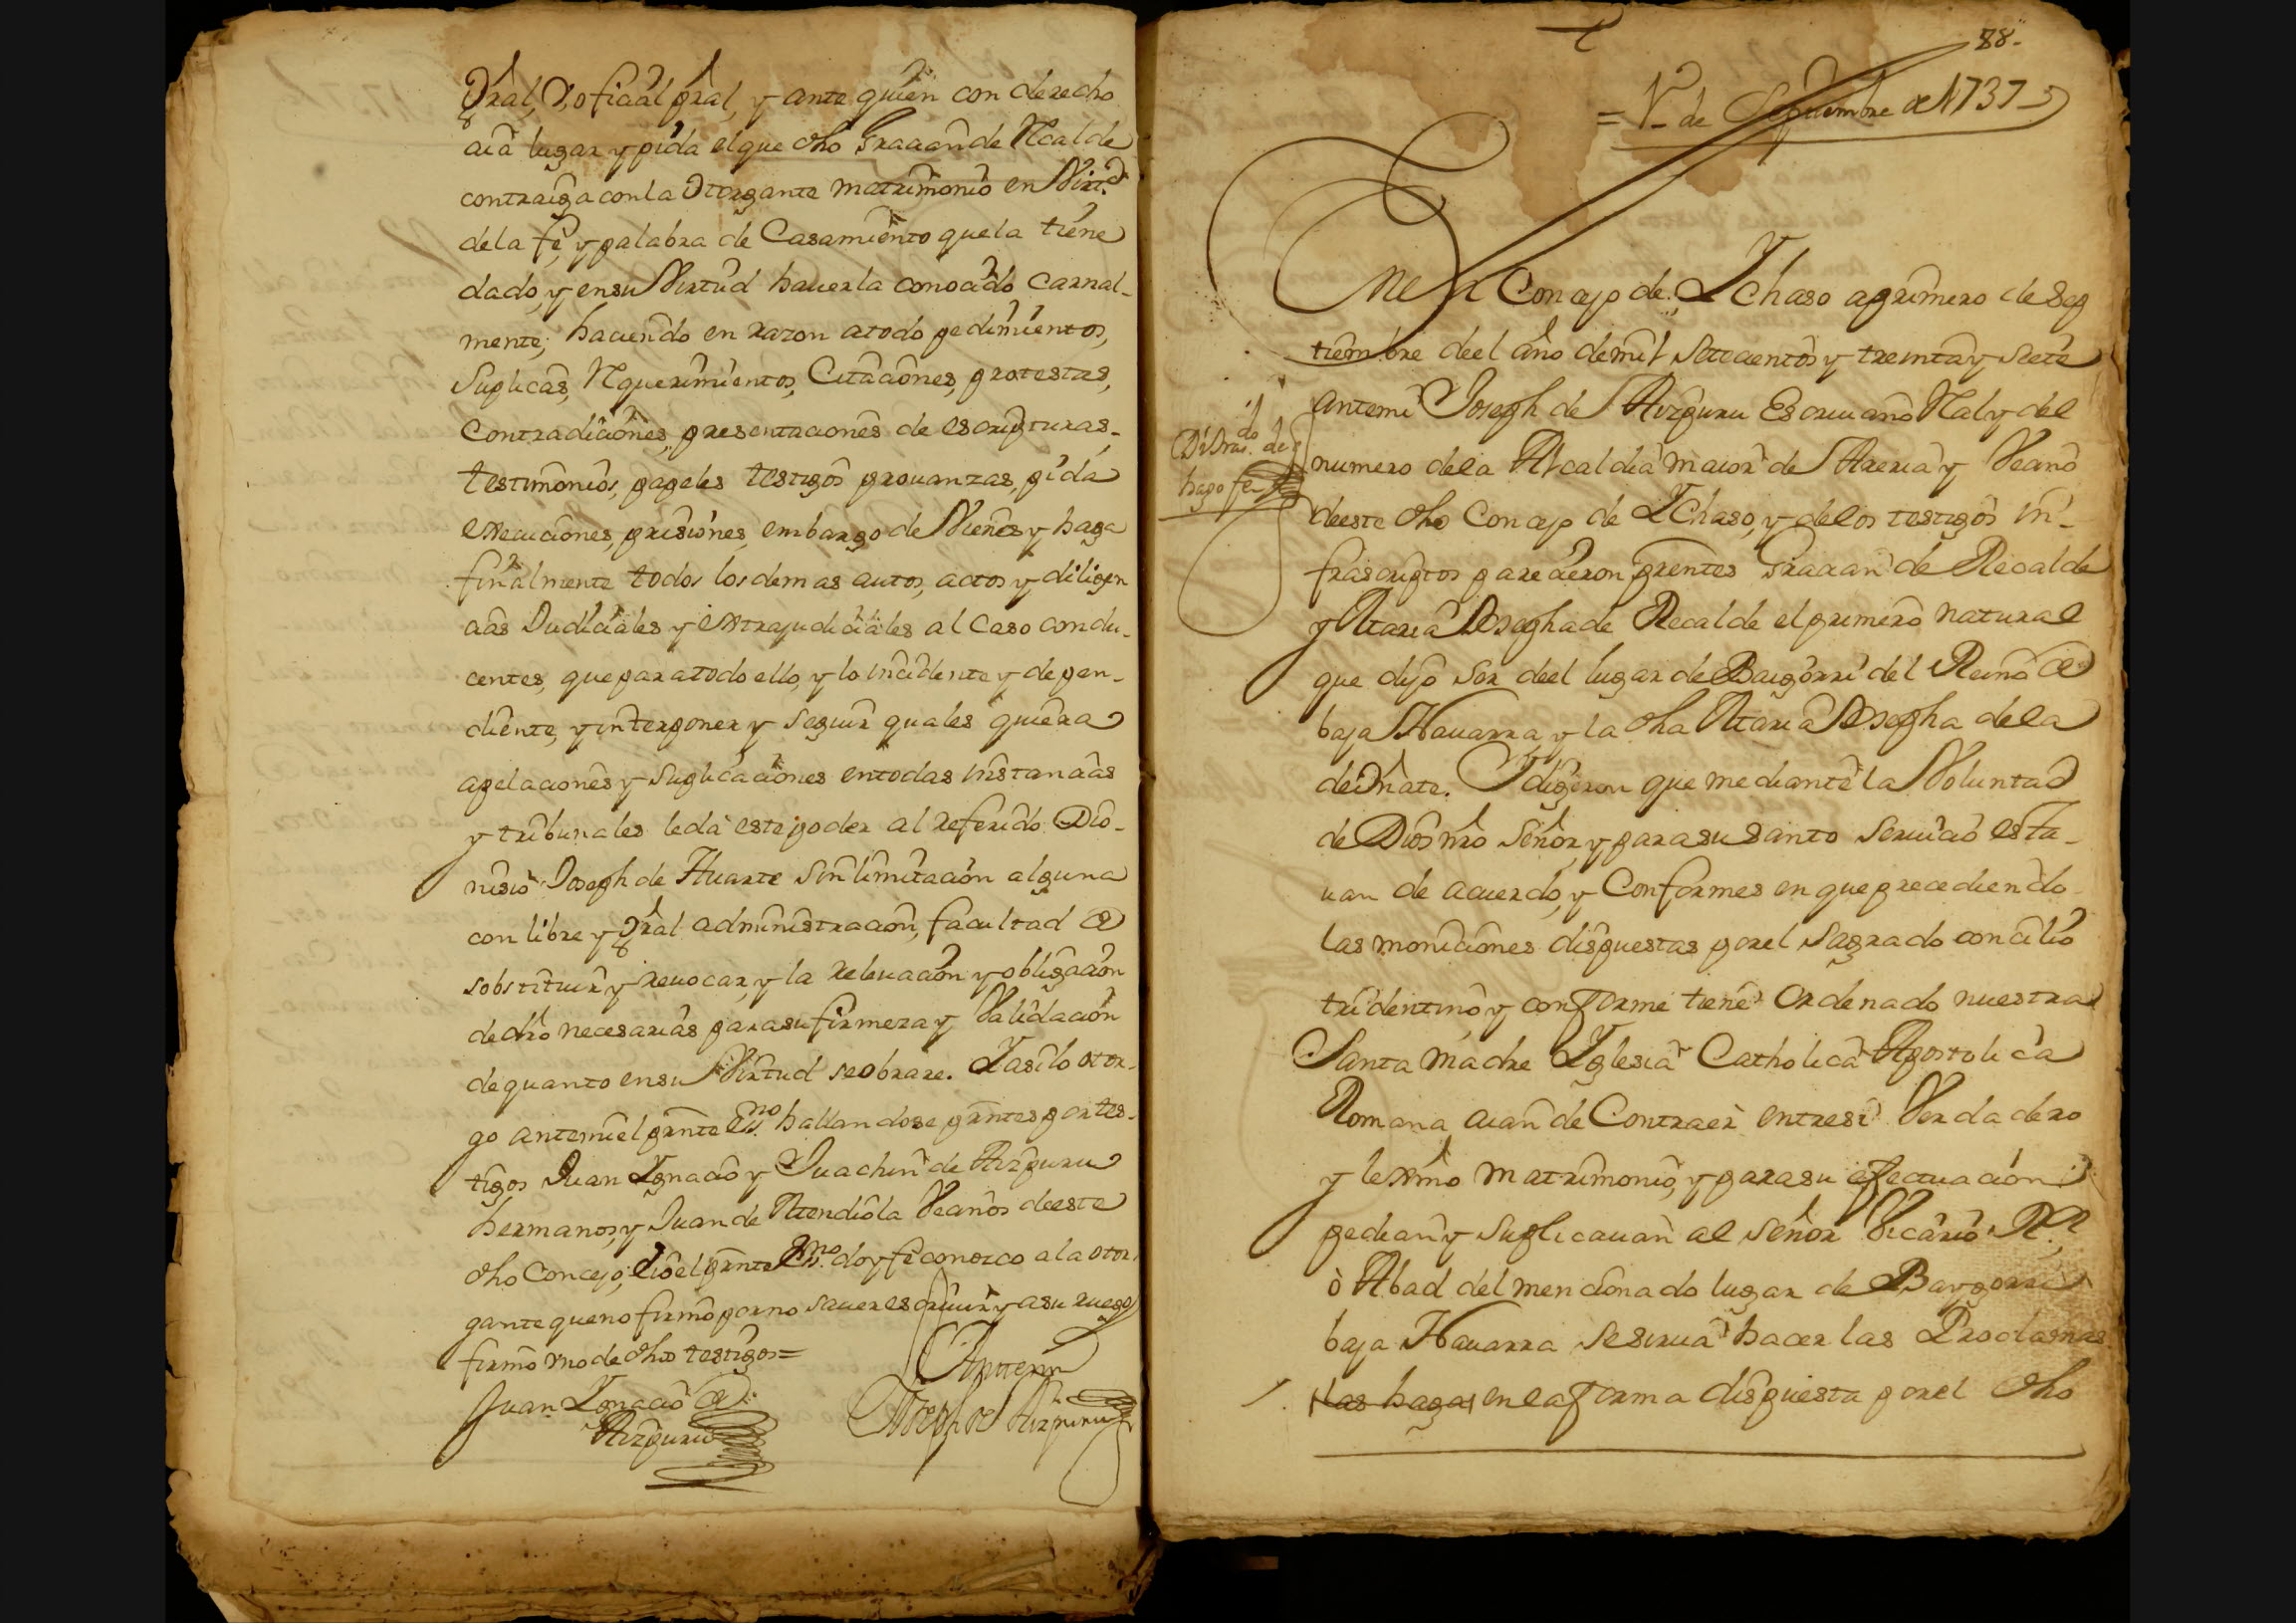 Gral, V, oficial pral, y ante quien con derecho
aia lugar y pida el que dho Gracian de Rcalde
contraiga con la Otorgante matrimonio en Virt.d
de la fe, y palabra de Casamiento que la tiene
dado, y en su Virtud hauerla conocido carnal-
mente; haciendo en razon a todo pedimientos,
Suplicas, Rquerimientos, Citaciones, protestas,
Contradiciones, presentaciones de escripturas-
testimonios, papeles testigos prouanzas, pida
execuciones, prisiones, embargo de Vienes y haga
finalmente todos los demas autos, actos y diligen
cias Judiciales y extrajudiciales al caso condu-
centes, que para todo ello, y lo incidente y depen-
diente, y interponer y seguir quales quiera
apelaciones y suplicaciones en todas instancias
y tribunales le da este poder al referido Dio-
nisio Joseph de Huarte sin limitacion alguna
con libre y gral administracion, facultad de
sobstituir y reuocar, y la releuacion y obligacion
de dro necesarias para su firmeza y Validacion
de quanto en su Virtud se obrare. Y asi lo otor-
go ante mi el prnte Esno hallandose prntes por tes-
tigos Juan Ygnacio y Juachin de Aizpuru
hermanos, y Juan de Mendiola Vecinos de este
dho Concejo, e io el prnte Esno doy fe conozco a la otor-
gante que no firmo por no sauer escriuir y a su ruego
firmo vno de dhos testigos=
Juan Ygnacio de
Aizpuru
Antemi
Joseph de Aizpuru
88.
= 1º de Septiembre de 1737
En el Concejo de Ychaso a primero de Sep
tiembre de el año de mil setecientos y treinta y siete
ante mi Joseph de Aizpuru Escriuano Ral y del
numero de la Alcaldia maior de Areria y Vecino
de este dho Concejo de Ychaso, y de los testigos in-
frascriptos parecieron prentes Gracian de Recalde
y Maria Josepha de Recalde el primero natural
que dijo ser de el lugar de Baigorri del Reino de
baja Nauarra y la dha Maria Josepha de la
de Oñate. Y digeron que mediante la Voluntad
de Dios nro Señor, y para su santo seruicio esta-
uan de acuerdo, y Conformes en que precediendo
las moniciones dispuestas por el Sagrado concilio
tridentino, y conforme tiene ordenado nuestra
Santa Madre Yglesia Catholica Apostolica
Romana auian de Contraer entre si Verdadero
y lexmo matrimonio, y para su efectuacion
pedian y suplicauan al señor Vicario, Rr,
ò Abad del mencionado lugar de Baygorri
baja Nauarra se sirua hacer las Proclamas
las haga en la forma dispuesta por el dho
hago fe